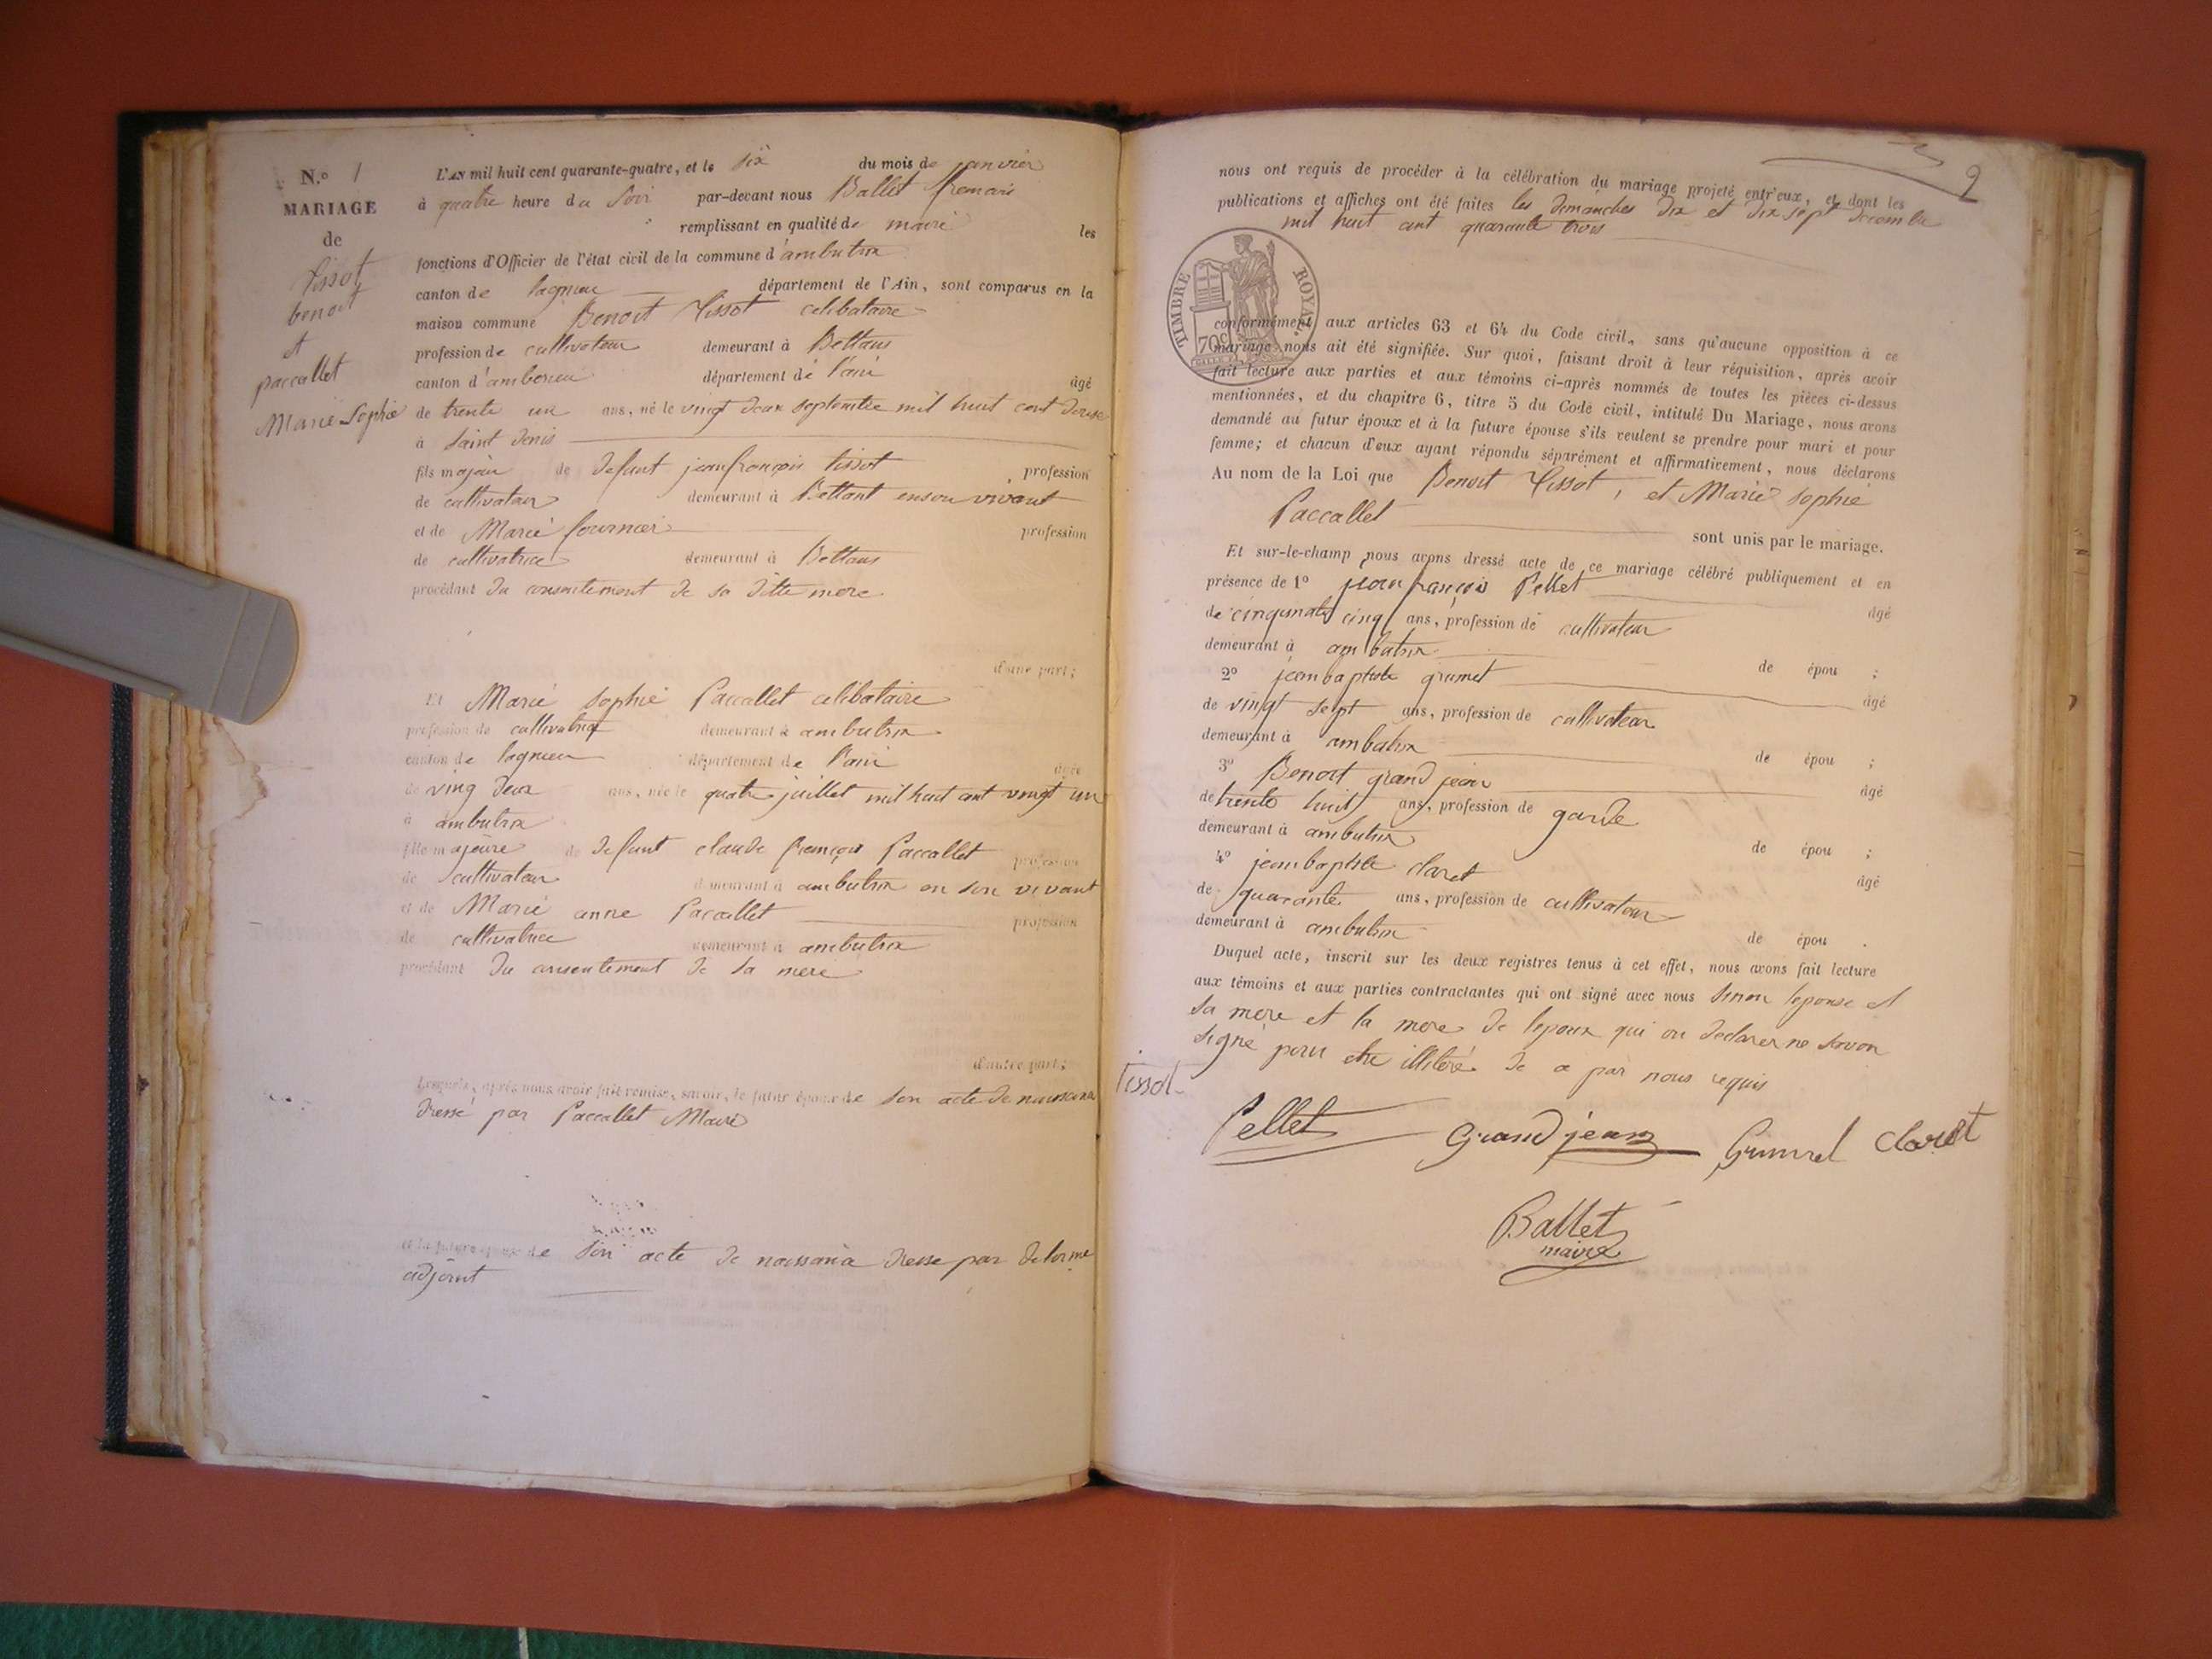 N.o 1
MARIAGE
de
tissot
benoit
et
paccallet
Marie Sophie
L'AN mil huit cent quarante-quatre, et le six du mois de janvier
à quatre heure du Soir par-devant nous Ballet francois
remplissant en qualité de maire les
fonctions d'Officier de l'état civil de la commune d'ambutrix
canton de lagnieu département de l'Ain, sont comparus en la
maison commune Benoit Tissot celibataire
profession de cultivateur demeurant à Bettans
canton d'amberieu département de l'ain âgé
de trente un ans, né le vingt deux septembre mil huit cent douze
à Saint denis
fils majeur de defunt jeanfrançois tissot profession
de cultivateur demeurant à Bettant enson vivant
et de Marie fournier profession
de cultivatrice demeurant à Bettans
procédant du consentement de sa ditte mere
d'une part;
Et Marie Sophie Paccallet celibataire
profession de cultivatrice demeurant à ambutrix
canton de lagnieu département de l'ain âgée
de ving deux ans, née le quatre juillet mil huit cent vingt un
à ambutrix
fille majeure de defunt claude françois Paccallet profession
de cultivateur demeurant à ambutrix en son vivant
et de Marie anne Pacallet profession
de cultivatrice demeurant à ambutrix
procédant du consentement de sa mere
d'autre part;
Lesquels, après nous avoir fait remise, savoir, le futur époux de son acte de naissance
dressé par Paccallet Maire
et la future épouse de son acte de naissance dresse par delorme
adjoint
2
nous ont requis de procéder à la célébration du mariage projeté entr'eux, et dont les
publications et affiches ont été faites les dimanches dix et dix sept decembre
mil huit cent quarante trois
TIMBRE ROYAL
70c
conformément aux articles 63 et 64 du Code civil, sans qu'aucune opposition à ce
mariage nous ait été signifiée. Sur quoi, faisant droit à leur réquisition, après avoir
fait lecture aux parties et aux témoins ci-après nommés de toutes les pièces ci-dessus
mentionnées, et du chapitre 6, titre 5 du Code civil, intitulé Du Mariage, nous avons
demandé au futur époux et à la future épouse s'ils veulent se prendre pour mari et pour
femme; et chacun d'eux ayant répondu séparément et affirmativement, nous déclarons
Au nom de la Loi que Benoit Tissot, et Marie Sophie
Paccallet sont unis par le mariage.
Et sur-le-champ nous avons dressé acte de ce mariage célébré publiquement et en
présence de 1o jean françois Pellet âgé
de cinqunate cinq ans, profession de cultivateur
demeurant à ambutrix de épou ;
2o jeanbaptiste grumet âgé
de vingt sept ans, profession de cultivateur
demeurant à ambutrix de épou ;
3o Benoit grand jean âgé
de trente huit ans, profession de garde
demeurant à ambutrix de épou ;
4o jeanbaptiste claret âgé
de quarante ans, profession de cultivateur
demeurant à ambutrix de épou .
Duquel acte, inscrit sur les deux registres tenus à cet effet, nous avons fait lecture
aux témoins et aux parties contractantes qui ont signé avec nous sinon leponse et
sa mere et la mere de lepoux qui on declarer ne savoir
signé pour etre illiteré de a par nous requis
Tissot
Pellet Grand jean Grumel Claret
Ballet
maire